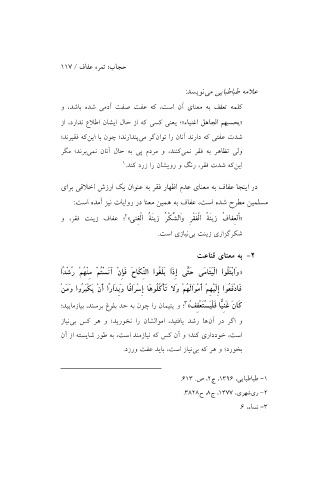 حجاب؛ ثمره عفاف / ۱۱۷
علامه طباطبایی می‌نویسد:
کلمه تعفف به معنای آن است، که عفت صفت آدمی شده باشد، و
«یحسبهم الجاهل اغنیاء»؛ یعنی کسی که از حال ایشان اطلاع ندارد، از
شدت عفتی که دارند آنان را توان‌گر می‌پندارند؛ چون با این‌که فقیرند؛
ولی تظاهر به فقر نمی‌کنند، و مردم پی به حال آنان نمی‌برند؛ مگر
این‌که شدت فقر، رنگ و رویشان را زرد کند.۱
در اینجا عفاف به معنای عدم اظهار فقر به عنوان یک ارزش اخلاقی برای
مسلمین مطرح شده است، عفاف به همین معنا در روایات نیز آمده است:
«اَلعِفافُ زینَةُ الْفَقْرِ وَالشُّکْرُ زینَةُ الْغِنی»۲؛ عفاف زینت فقر، و
شکرگزاری زینت بی‌نیازی است.
۲- به معنای قناعت
«وَابْتَلُوا الْیَتَامَى حَتَّى إِذَا بَلَغُوا النِّکَاحَ فَإِنْ آنَسْتُمْ مِنْهُمْ رُشْدًا
فَادْفَعُوا إِلَیْهِمْ أَمْوَالَهُمْ وَلَا تَأْکُلُوهَا إِسْرَافًا وَبِدَارًا أَنْ یَکْبَرُوا وَمَنْ
کَانَ غَنِیًّا فَلْیَسْتَعْفِفْ»۳؛ و یتیمان را چون به حد بلوغ برسند، بیازمایید؛
و اگر در آن‌ها رشد یافتید، اموالشان را نخورید؛ و هر کس بی‌نیاز
است، خودداری کند؛ و آن کس که نیازمند است، به طور شایسته از آن
بخورد؛ و هر که بی‌نیاز است، باید عفت ورزد.
۱- طباطبایی، ۱۳۹۶، ج۲، ص. ۶۱۳.
۲- ری‌شهری، ۱۳۷۷، ج۸، ح۳۸۲۸.
۳- نساء، ۶